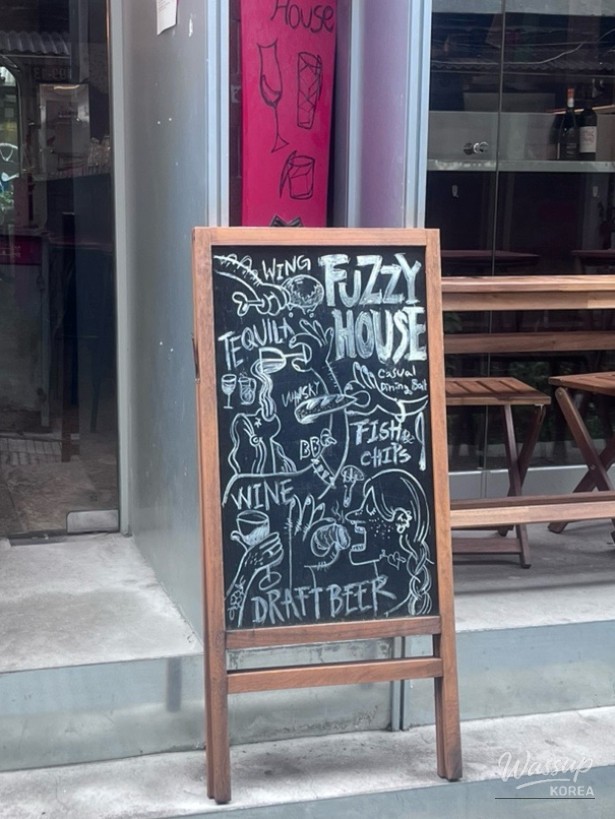 House
WING
FUZZY
HOUSE
TEQUILA
Casual
Dining Bar
WHISKY
FISH &
CHIPS
BBQ
WINE
DRAFT BEER
Wassup
KOREA